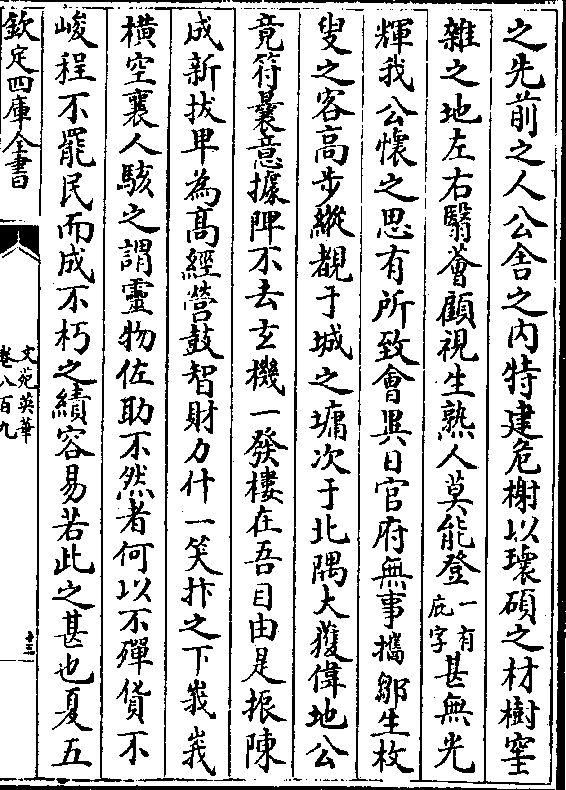 之先前之人公舎之内特建危榭以瓌碩之材樹窒
雜之地左右翳薈顧視生熟人莫能登一有庇字甚無光
輝我公懷之思有所致會異日官府無事攜鄒生枚
叟之客高步縱觀于城之墉次于北隅大獲偉地公
竟符曩意據陴不去玄機一發樓在吾目由是振陳
成新拔卑為高經營鼓智財力什一笑抃之下峩峩
横空襄人駭之謂靈物佐助不然者何以不殫貨不
峻程不罷民而成不朽之績容易若此之甚也夏五
欽定四庫全書
文苑英華
卷八百九
十三